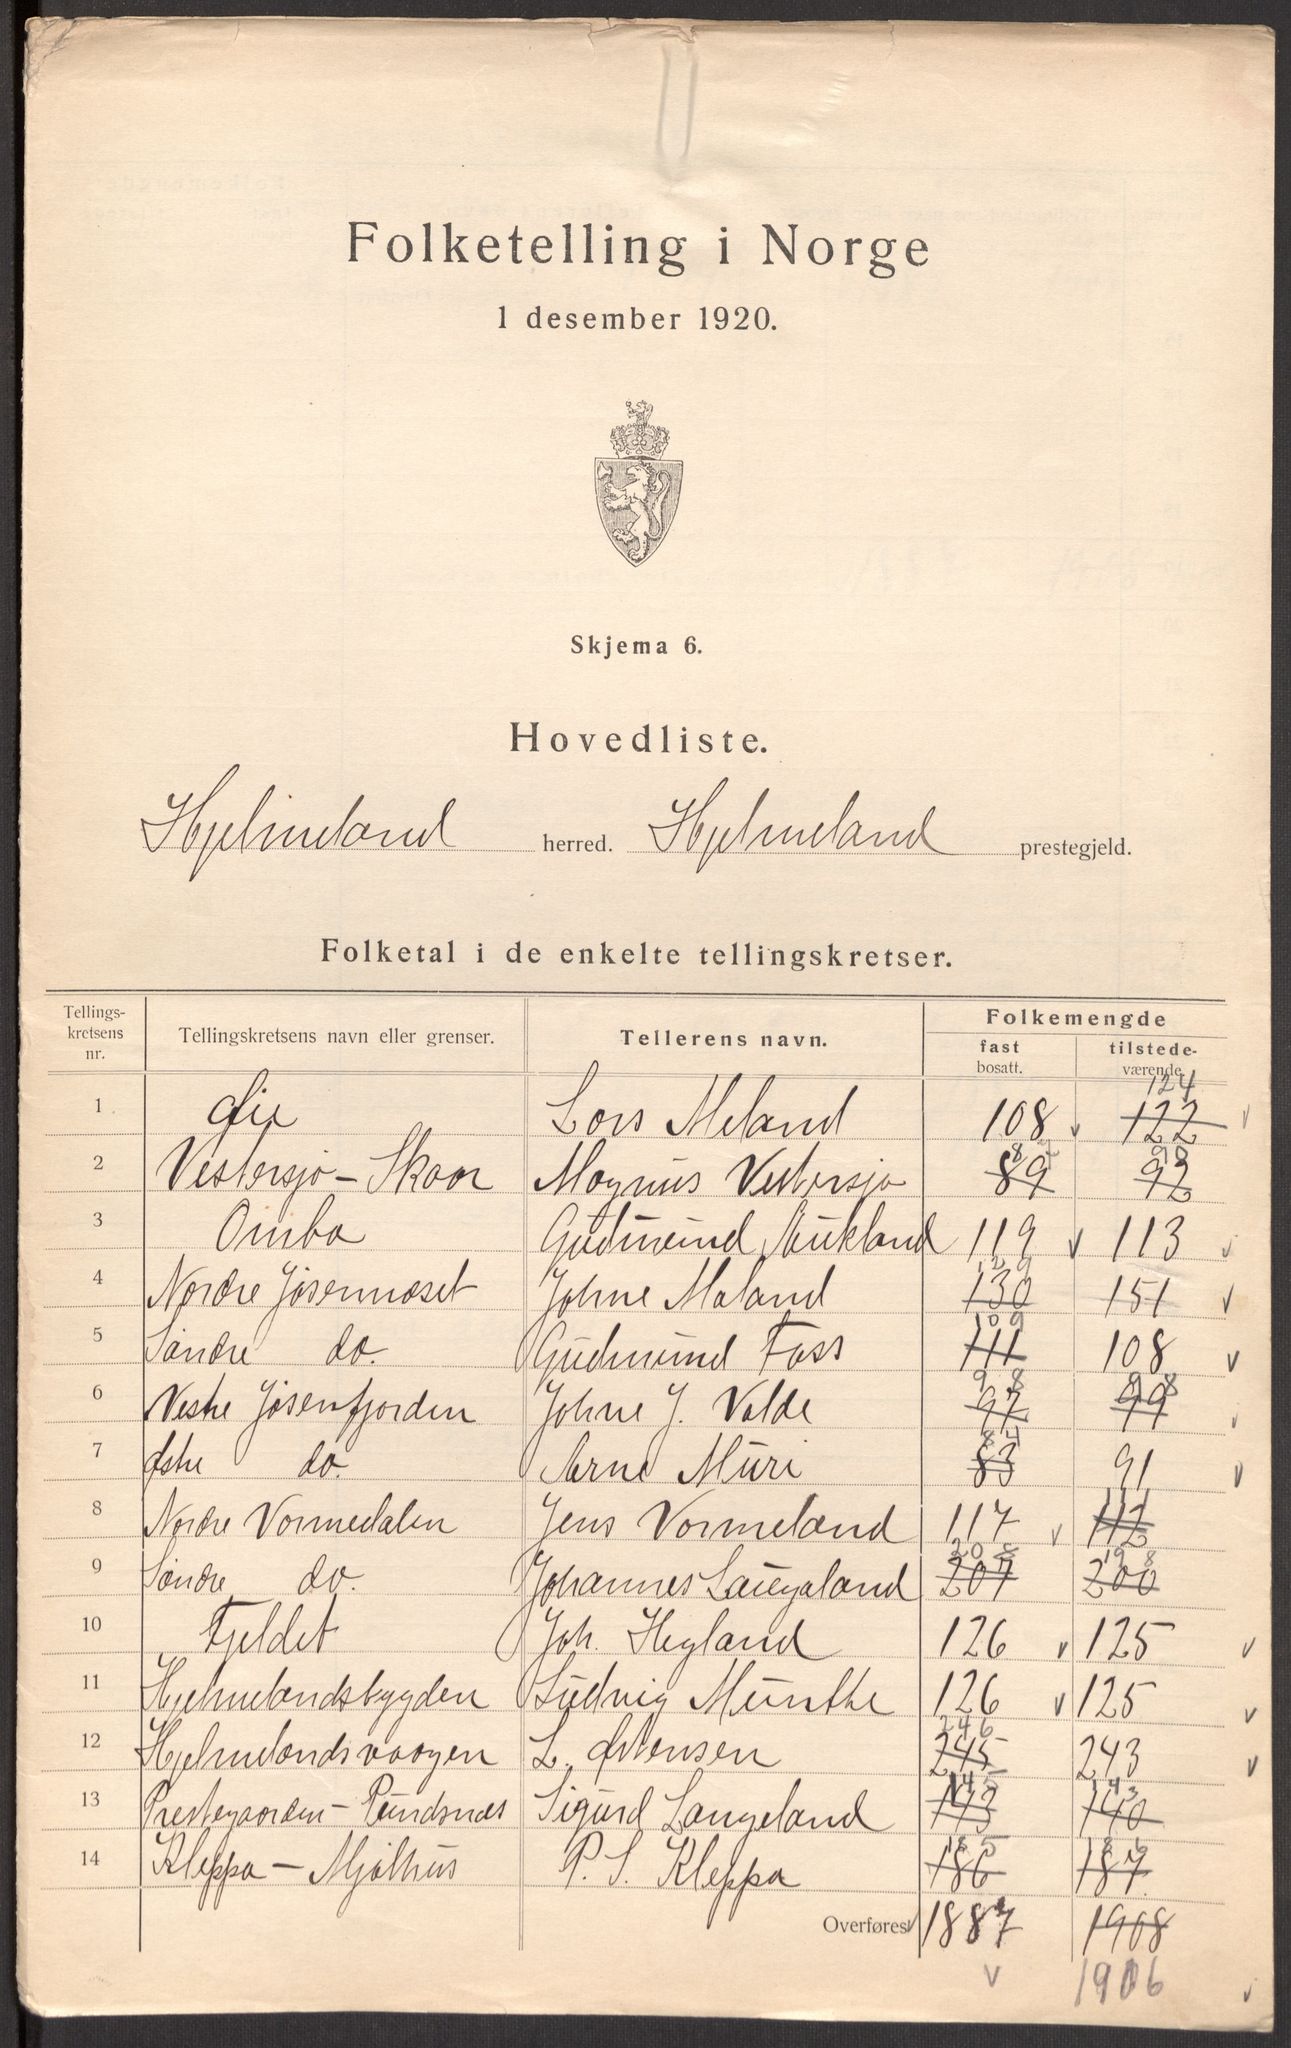 Folketelling i Norge
1 desember 1920.
Skjema 6.
Hovedliste.
Hjelmeland herred. Hjelmeland prestegjeld.
Folketal i de enkelte tellingskretser.
Tellings-
kretsens
nr.
Tellingskretsens navn eller grenser.
Tellerens navn.
Folkemengde
fast
bosatt.
tilstede-
værende
124
1 Øie Lars Meland 108 v 122 v
87 90
2 Vestersjø – Skaar Magnus Vestersjø 89 92
3 Ombo Gudmund Aukland 119 v 113 v
129
4 Nordre Jøsenneset Johne Maland 130 151 v
109
5 Søndre do. Gudmund Foss 111 108 v
98 98
6 Vestre Jøsenfjorden Johne J. Valde 97 99 v
84
7 Østre do. Arne Muri 83 91 v
111
8 Nordre Vormedalen Jens Vormeland 117 v 112
208 198
9 Søndre do. Johannes Laugaland 207 200
10 Fjeldet Joh. Hegland 126 v 125 v
11 Hjelmelandsbygden Ludvig Munthe 126 v 125 v
246
12 Hjelmelandsvaagen L. Østensen 245 243 v
145 143
13 Prestegaarden – Pundsnes Sigurd Langeland 143 140
185 186
14 Kleppa – Mjølhus P. S. Kleppa 186 187
Overføres 1887 1908
v 1906 v